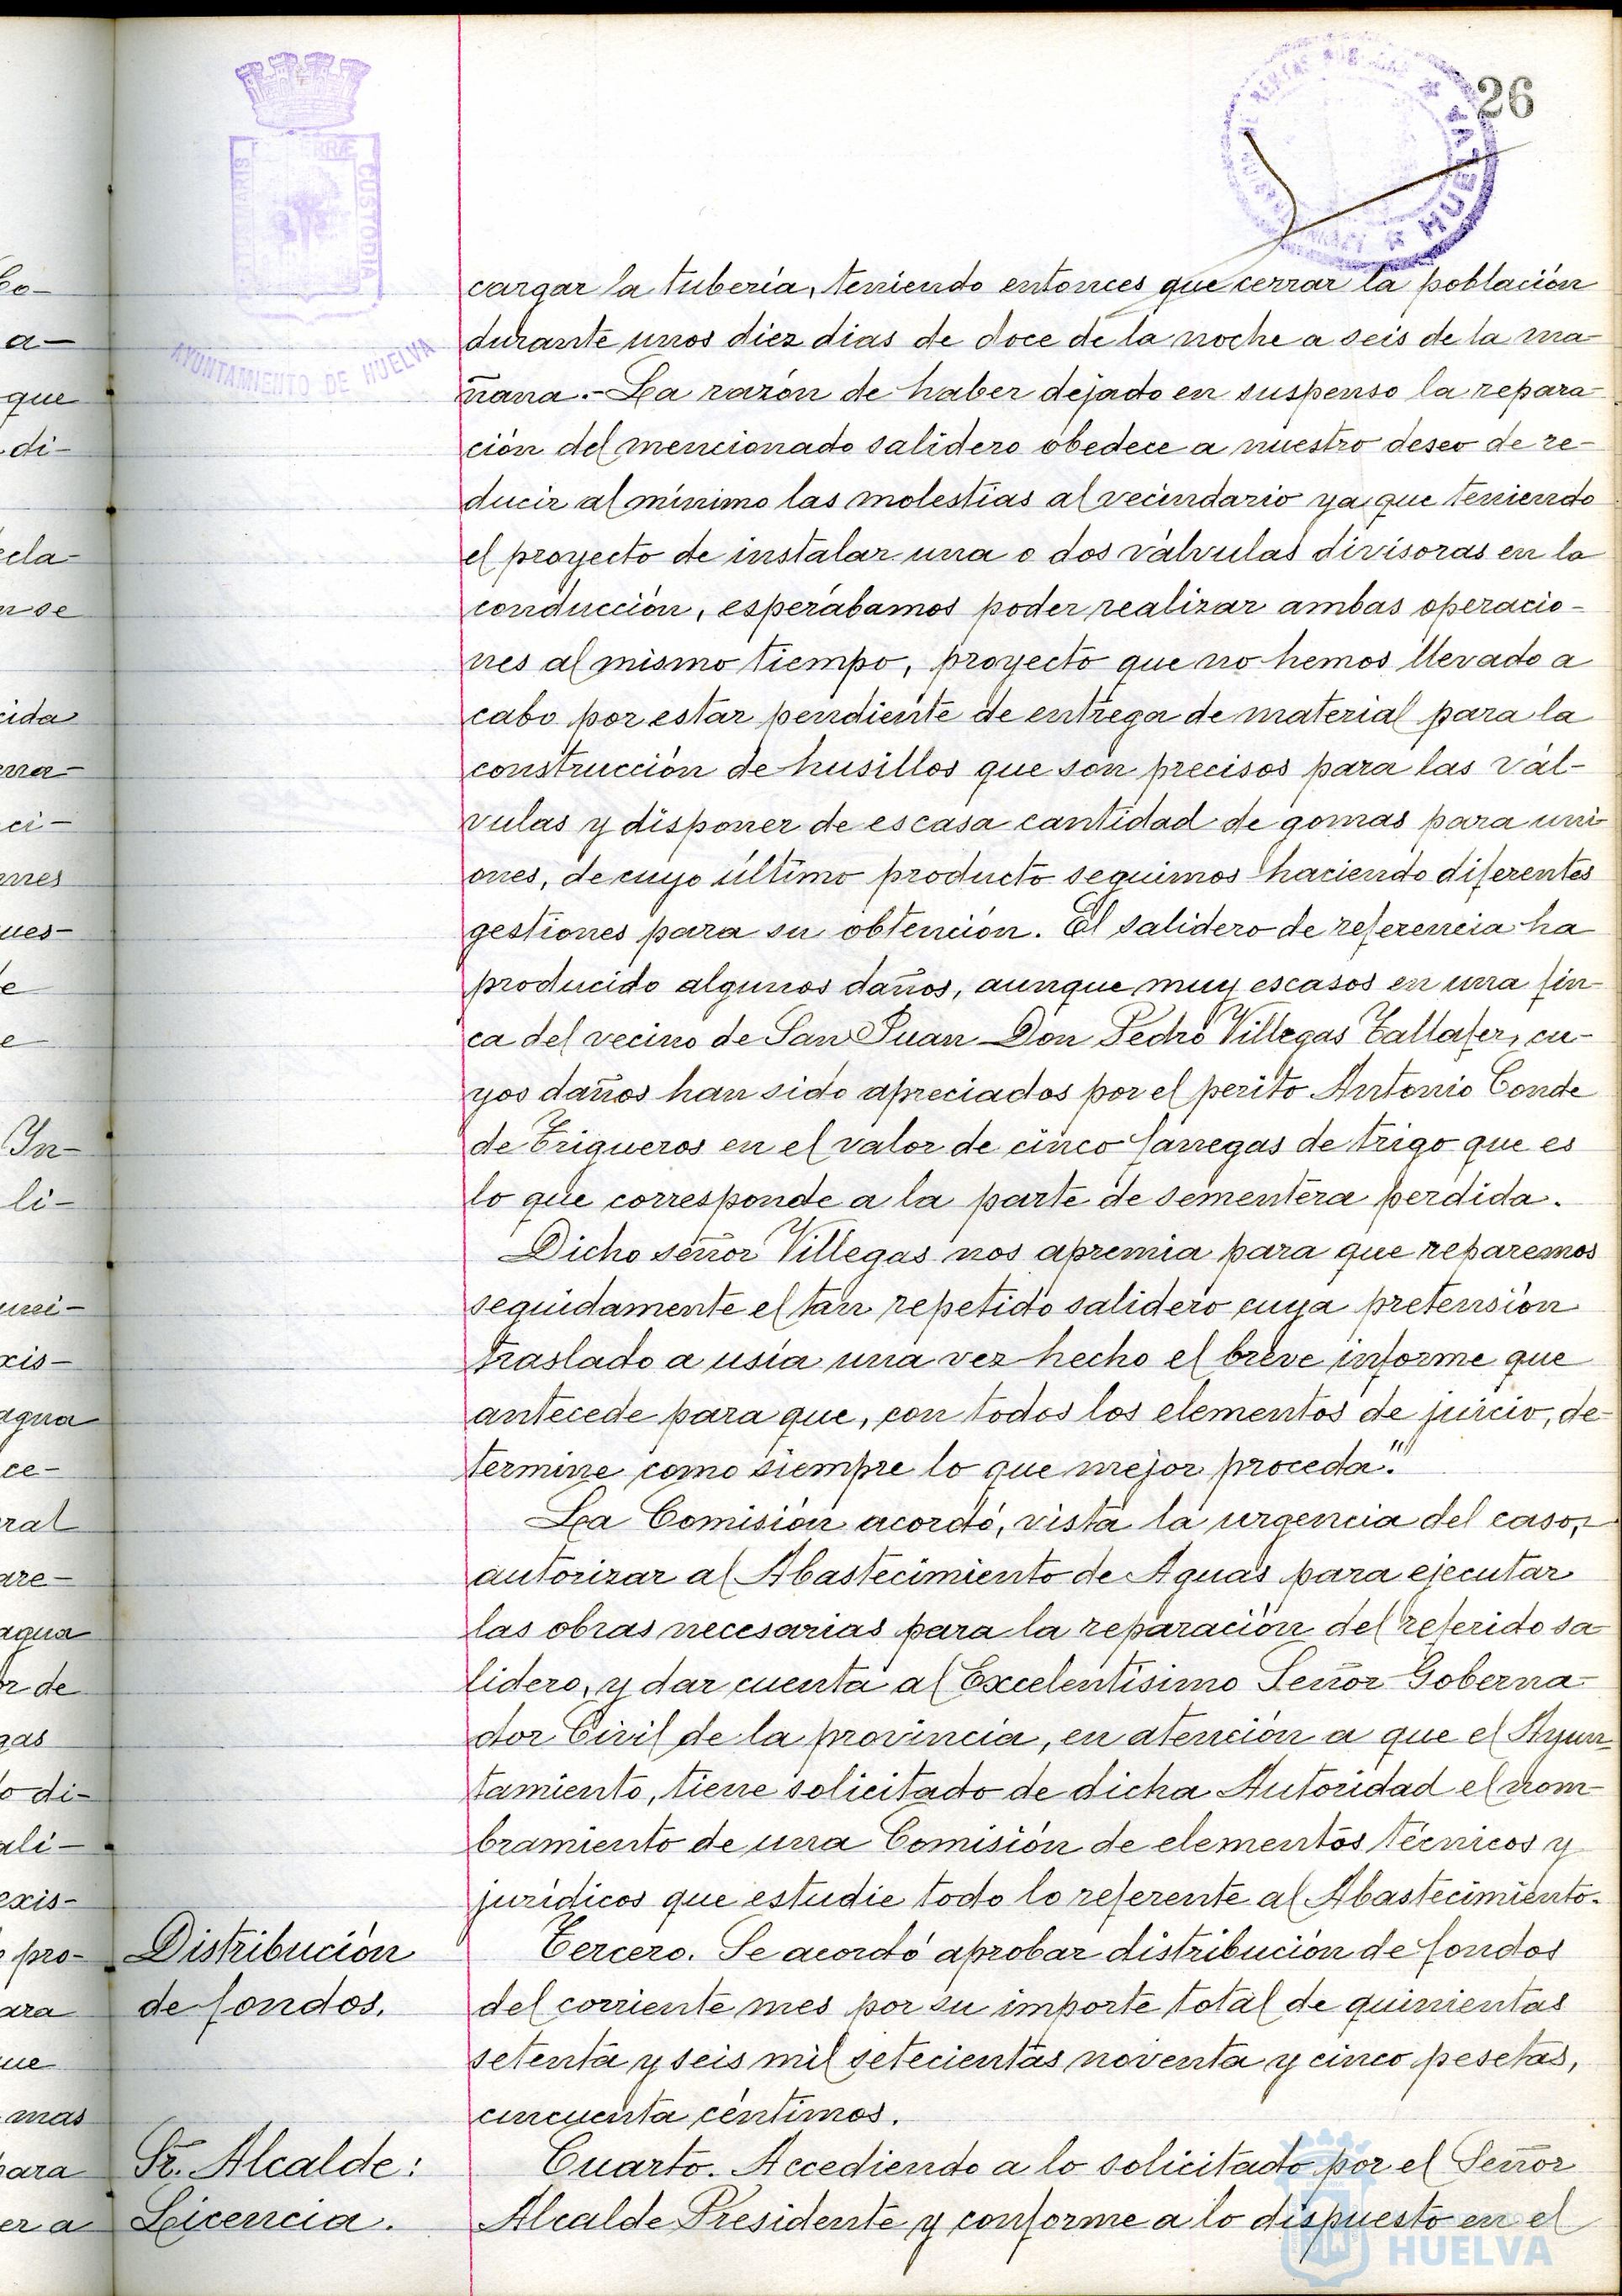 26
AYUNTAMIENTO DE HUELVA
CUSTODIA
HUELVA
cargar la tubería, teniendo entonces que cerrar la población
durante unos diez dias de doce de la noche a seis de la ma-
ñana.- La razón de haber dejado en suspenso la repara-
ción del mencionado salidero obedece a nuestro deseo de re-
ducir al mínimo las molestias al vecindario ya que teniendo
el proyecto de instalar una o dos válvulas divisoras en la
conducción, esperábamos poder realizar ambas operacio-
nes al mismo tiempo, proyecto que no hemos llevado a
cabo por estar pendiente de entrega de material para la
construcción de husillos que son precisos para las vál-
vulas y disponer de escasa cantidad de gomas para uni-
ones, de cuyo último producto seguimos haciendo diferentes
gestiones para su obtención. El salidero de referencia ha
producido algunos daños, aunque muy escasos en una fin-
ca del vecino de San Juan Don Pedro Villegas Tallafer, cu-
yos daños han sido apreciados por el perito Antonio Conde
de Trigueros en el valor de cinco fanegas de trigo que es
lo que corresponde a la parte de sementera perdida.
Dicho señor Villegas nos apremia para que reparemos
seguidamente el tan repetido salidero cuya pretensión
traslado a usía una vez hecho el breve informe que
antecede para que, con todos los elementos de juicio, de-
termine como siempre lo que mejor proceda."
La Comisión acordó, vista la urgencia del caso,
autorizar al Abastecimiento de Aguas para ejecutar
las obras necesarias para la reparación del referido sa-
lidero, y dar cuenta al Excelentísimo Señor Goberna-
dor Civil de la provincia, en atención a que el Ayun-
tamiento, tiene solicitado de dicha Autoridad el nom-
bramiento de una Comisión de elementos técnicos y
jurídicos que estudie todo lo referente al Abastecimiento.
Distribución
de fondos.
Tercero. Se acordó aprobar distribución de fondos
del corriente mes por su importe total de quinientas
setenta y seis mil setecientas noventa y cinco pesetas,
cincuenta céntimos.
Sr. Alcalde:
Licencia.
Cuarto. Accediendo a lo solicitado por el Señor
Alcalde Presidente y conforme a lo dispuesto en el
HUELVA